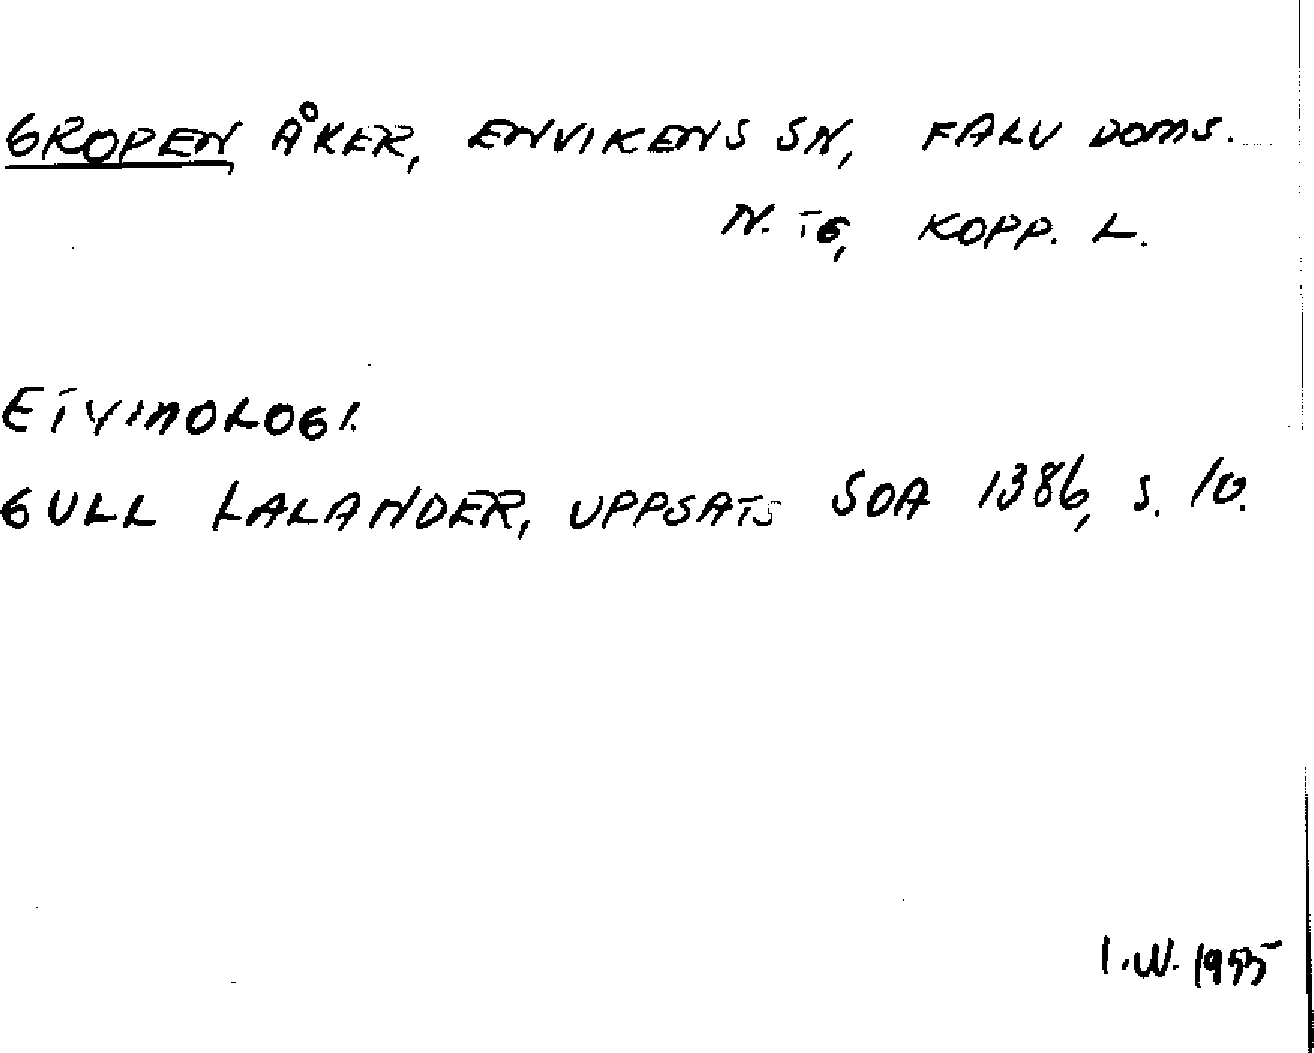 GROPEN ÅKER, ENVIKENS SN, FALU DOMS.
N. TG, KOPP. L.
ETYMOLOGI.
GULL LALANDER, UPPSATS SOA 1386, S. 10.
I.W. 1955